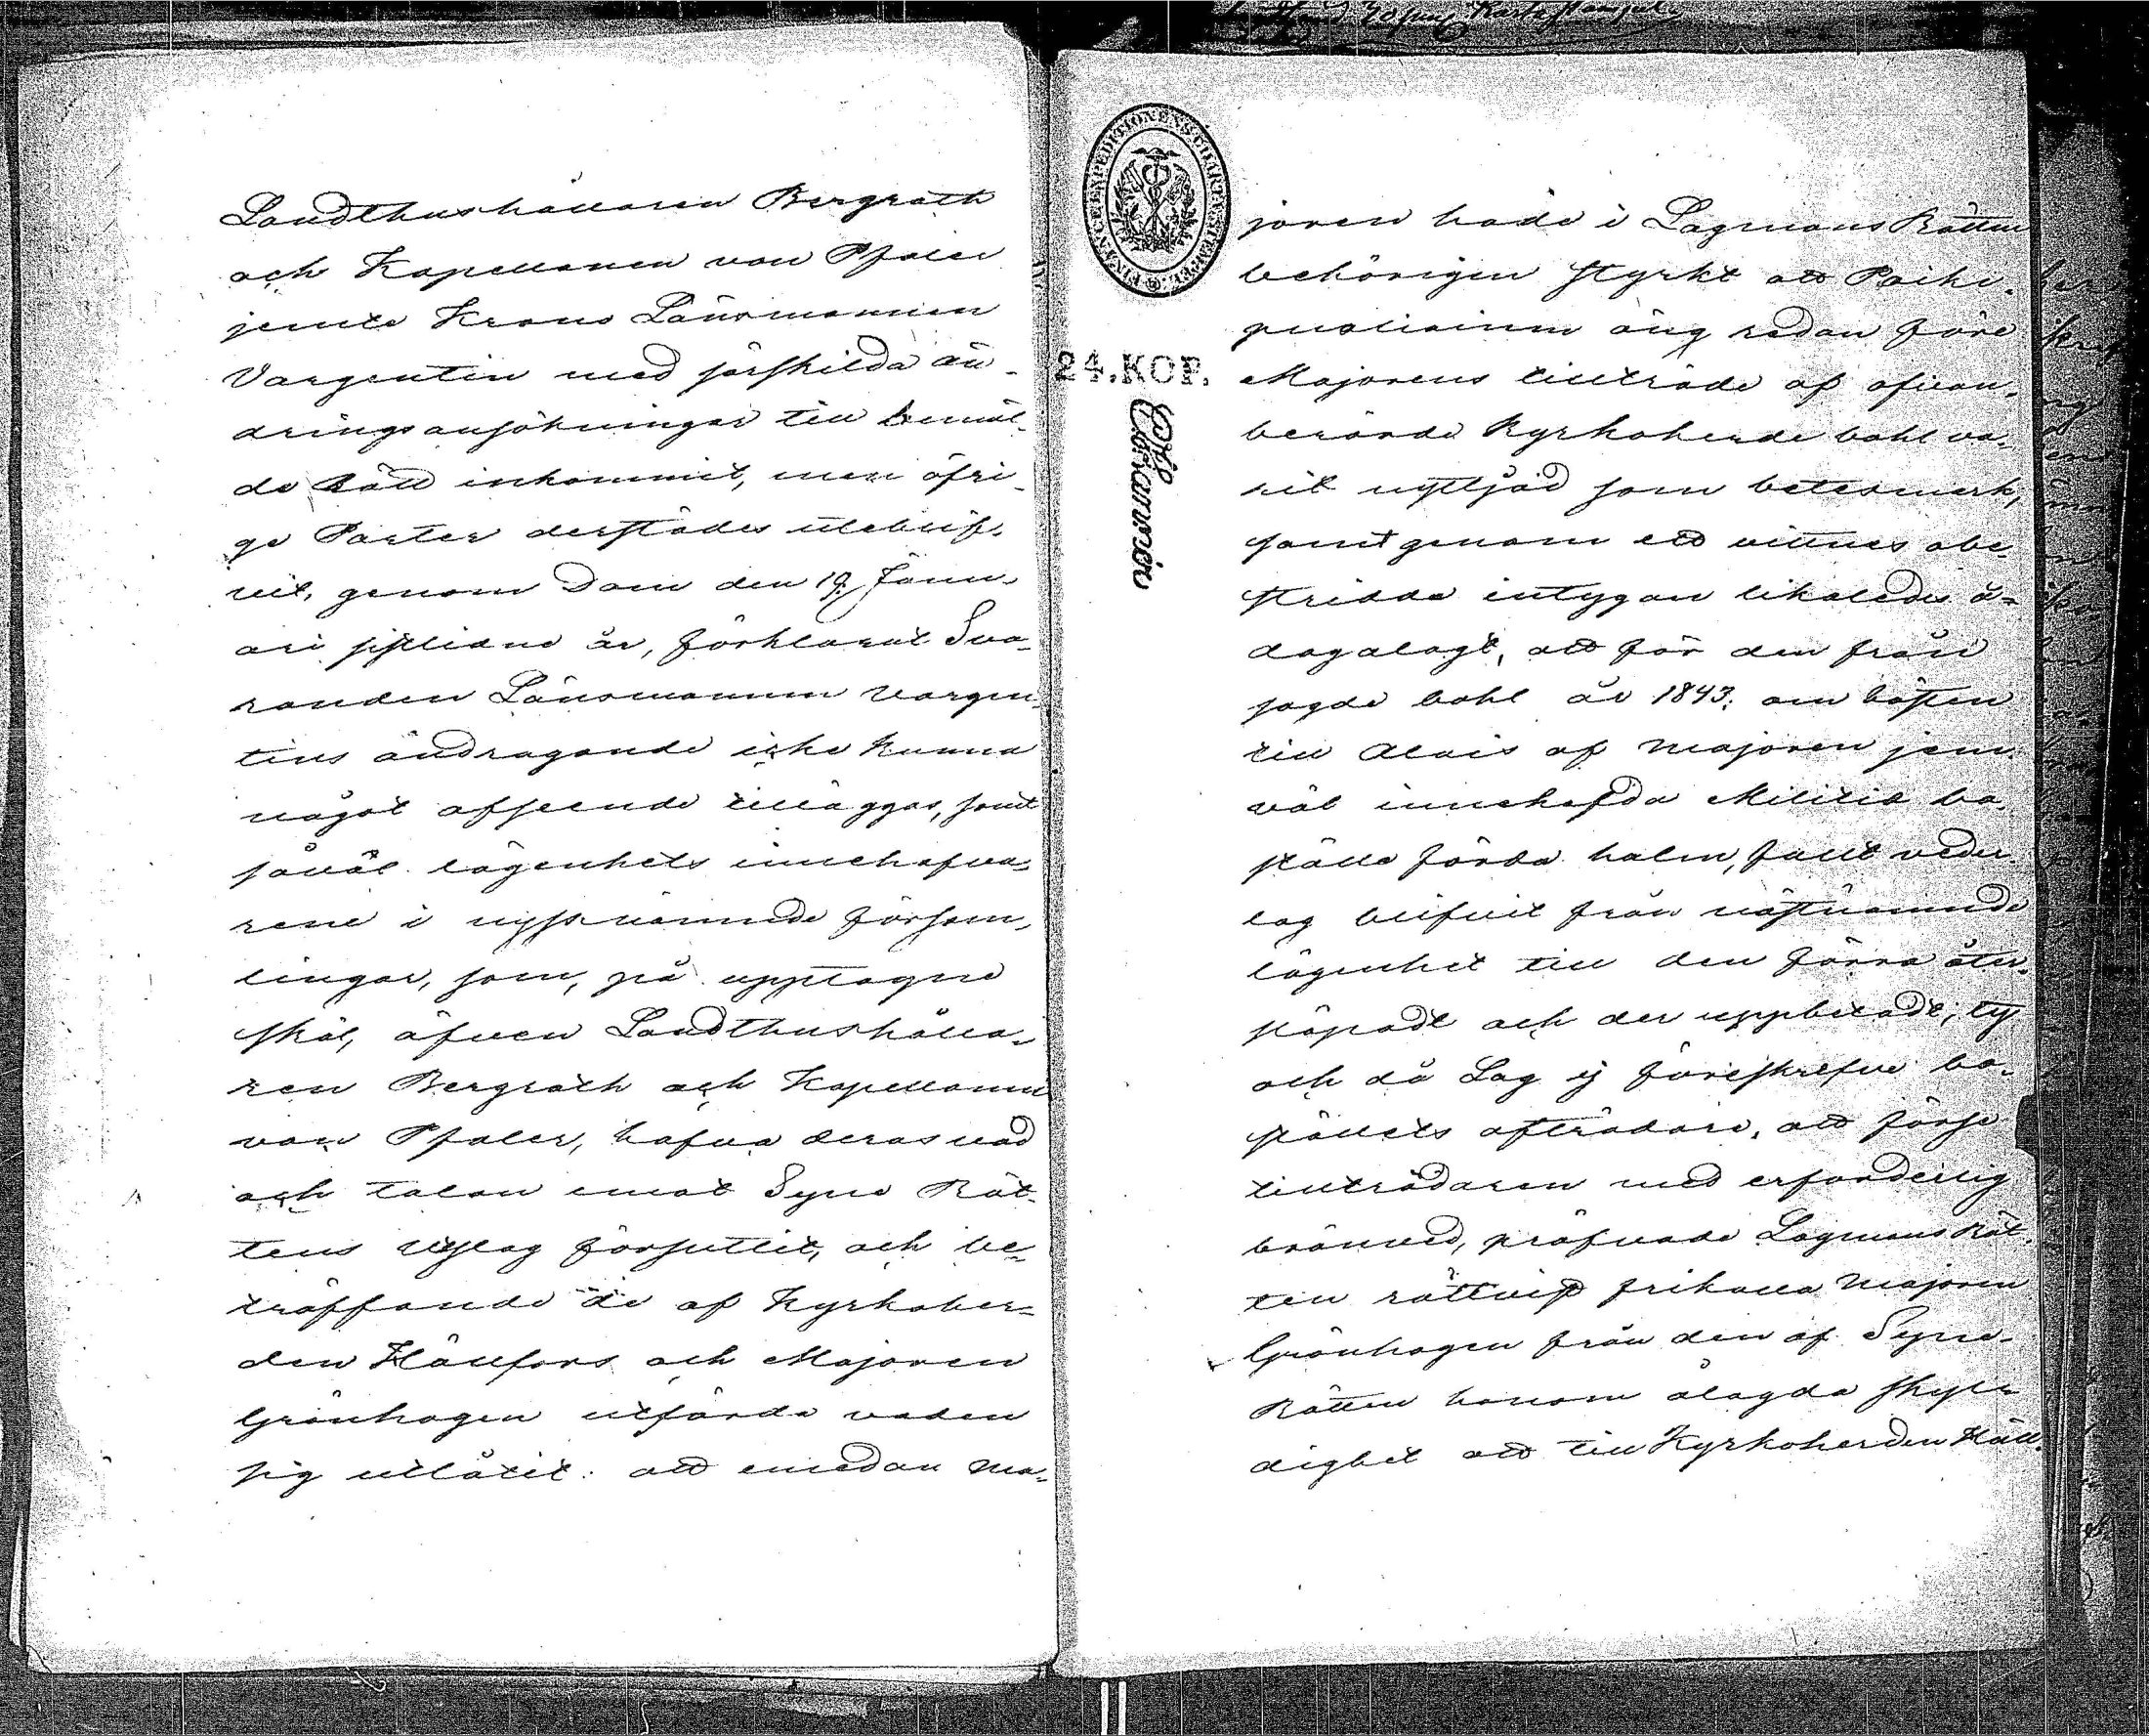 Landthushållaren Bergroth
och Kapellanen von Pfaler
jemte Krono Länsmannen
Vargentin med särskilda än-
dringsansökningar till bemäl-
de Rätt inkommit, men öfri-
ge Parter derstädes uteblif-
vit, genom Dom den 19. Janu-
ari sistlidne år, förklarat Sva-
randen Länsmannen Vargen-
tins andragande icke kunna
något afseende tilläggas, samt
såväl lägenhets innehafva-
rene i nyssnämnde försam-
lingar, som, på upptagne
skäl, äfven Landthushålla-
ren Bergroth och Kapellanen
von Pfaler, hafva deras vad
och talan emot Syne Rät-
tens utslag försuttit, och be-
träffande de af Kyrkoher-
den Hällfors och Majoren
Grönhagen utförda vaden
sig utlåtit: att emedan Ma-
FINANCE EXPEDITIONENS CHARTÆ STEMPEL
24. KOP.
joren hade i Lagmans Rätten
behörigen styrkt att
äng redan före
Majorens tillträde af ofvan-
berörde Kyrkoherde bohl va-
rit nyttjad som betesmark,
samt genom ett vittnes obe-
stridda intygan likaledes å-
dagalagt, att för den från
sagde bohl år 1843. om hösten
till Alais af Majoren jem-
väl innehafda Militie bo-
ställe förda halm, fullt veder-
lag blifvit från nästnämnde
lägenhet till den förra åter-
släpadt och der uppbetadt; ty
och då Lag ej föreskrefve bo-
ställets afträdare, att förse
tillträdaren med erforderlig
bränved, pröfvade Lagmans Rät-
ten rättvist frikalla Majoren
Grönhagen från den af Syne-
Rätten honom ålagda skyl-
dighet att till Kyrkoherden Häll-